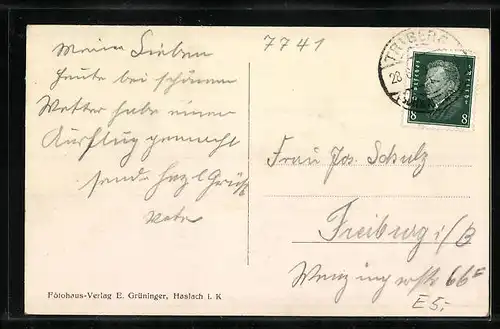 Meine Lieben
heute bei schönem
Wetter habe einen
Ausflug gemacht
sende herzl Grüße
Vater
7741
TRIBERG
28
8 8
Frau Jos. Schulz
Freiburg i/B
Wenzingerstr 66
E 5,-
Fotohaus-Verlag E. Grüninger, Haslach i. K